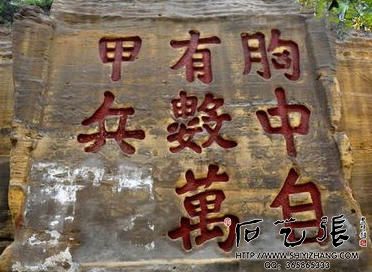 胸中自
有數萬
甲兵
石艺張
WWW.SHIYIZHANG.COM
QQ: 365869333